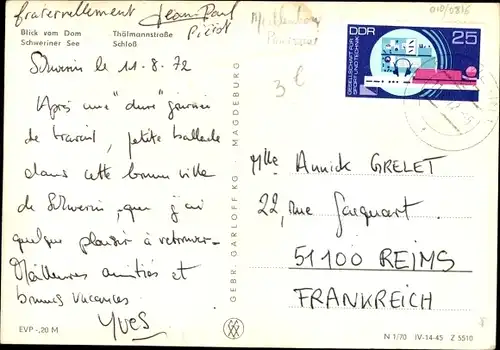 fraternellement Jean-Paul
Blick vom Dom Thälmannstraße
Schweriner See Schloß
Schwerin le 11.8.72
Après une "dure" journée
de travail, petite ballade
dans cette bonne ville
de Schwerin, que j'ai
quelque plaisir à retrouver.
Meilleures amitiés et
bonnes vacances
Yves
EVP -,20 M
GEBR. GARLOFF KG · MAGDEBURG
3
010/0816
DDR 25
GESELLSCHAFT FÜR
SPORT UND TECHNIK
Mlle Annick GRELET
22, rue Jacquart
51100 REIMS
FRANKREICH
N 1/70 IV-14-45 Z 5510